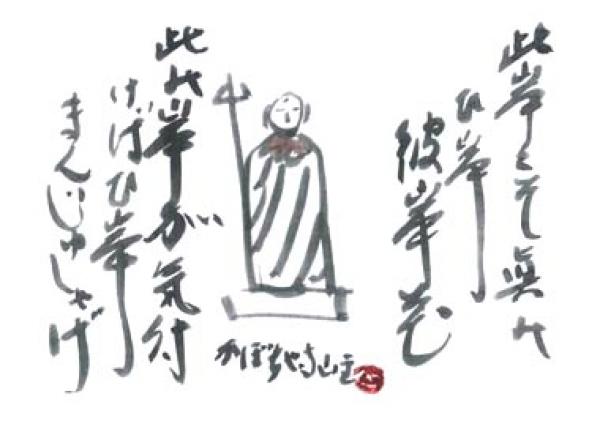 此岸こそ眞の
ひ岸
彼岸花
此の岸が気付
けばひ岸
まんじゅしゃげ
かぼちゃ寺山主